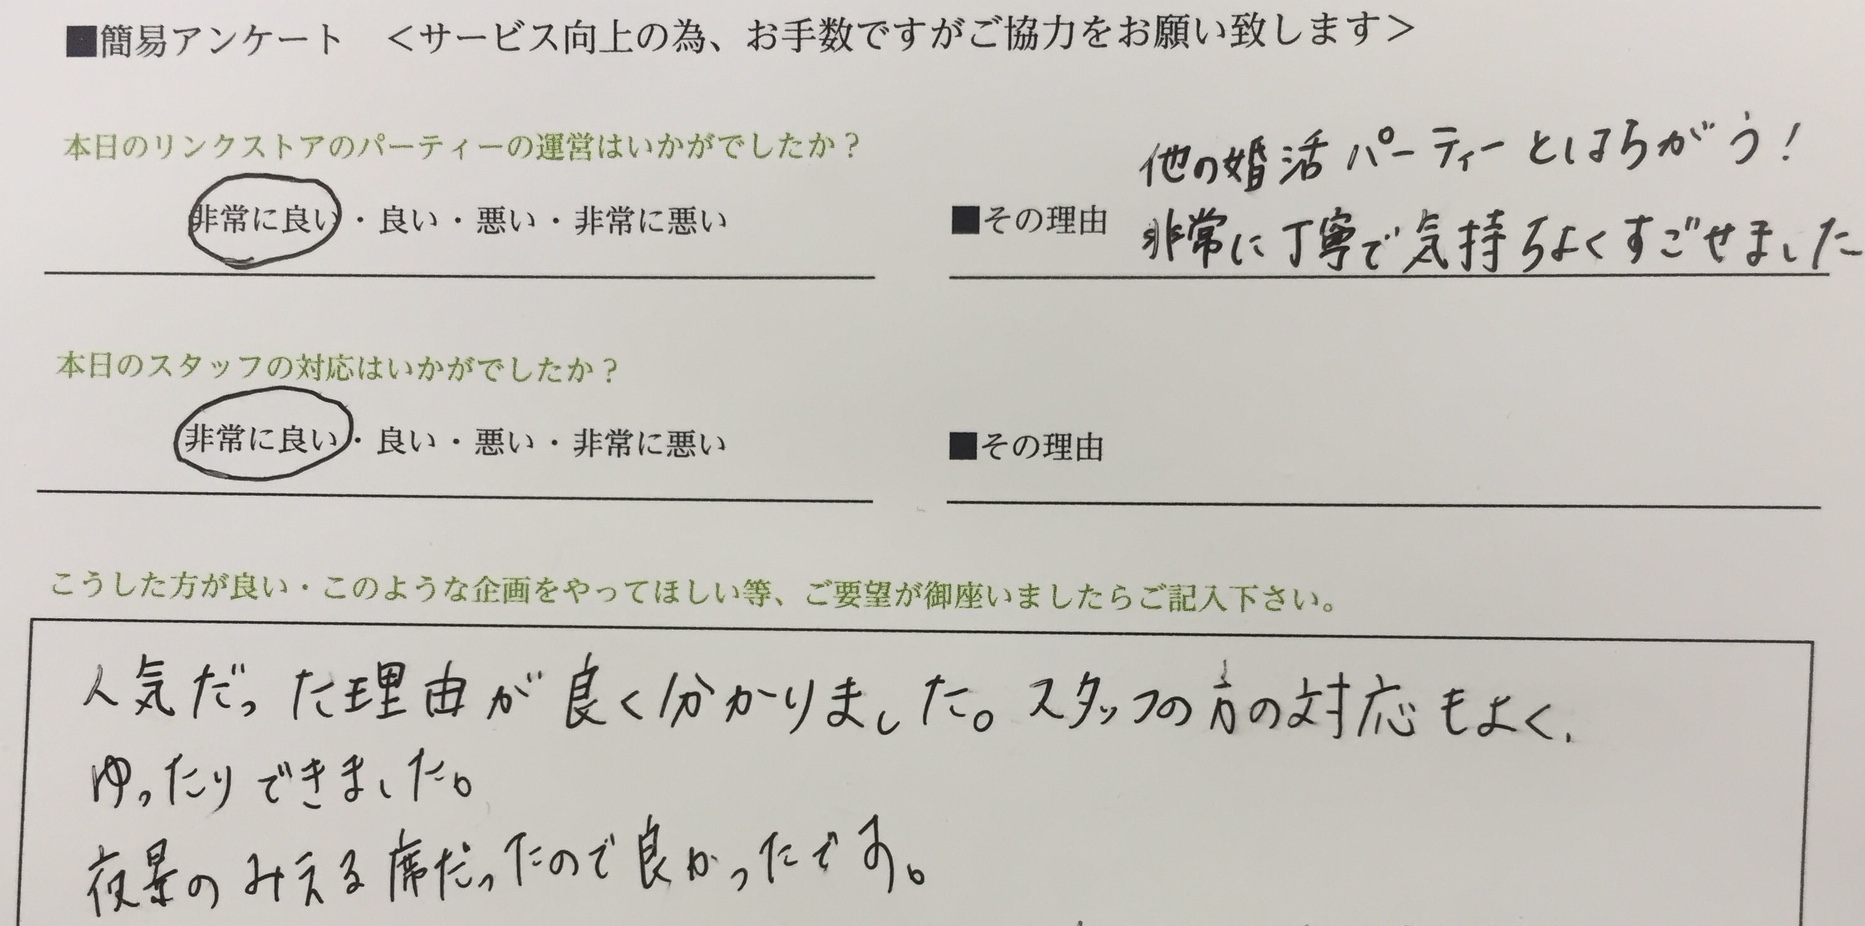 ■簡易アンケート ＜サービス向上の為、お手数ですがご協力をお願い致します＞
本日のリンクストアのパーティーの運営はいかがでしたか？
非常に良い・良い・悪い・非常に悪い
■その理由
他の婚活パーティーとはちがう！
非常に丁寧で気持ちよくすごせました
本日のスタッフの対応はいかがでしたか？
非常に良い・良い・悪い・非常に悪い
■その理由
こうした方が良い・このような企画をやってほしい等、ご要望が御座いましたらご記入下さい。
人気だった理由が良く分かりました。スタッフの方の対応もよく、
ゆったりできました。
夜景のみえる席だったので良かったです。